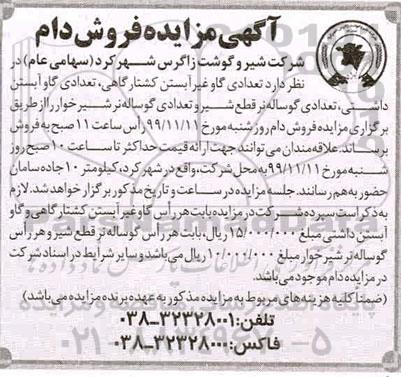 آگهی مزایده فروش دام
شرکت شیر و گوشت زاگرس شهرکرد (سهامی عام) در
نظر دارد تعدادی گاو غیر آبستن کشتارگاهی، تعدادی گاو آبستن
داشتی، تعدادی گوساله نر قطع شیر و تعدادی گوساله نر شیرخوار را از طریق
برگزاری مزایده فروش دام روز شنبه مورخ ۹۹/۱۱/۱۱ رأس ساعت ۱۱ صبح به فروش
برساند. علاقه‌مندان می‌توانند جهت ارائه قیمت حداکثر تا ساعت ۱۰ صبح روز
شنبه مورخ ۹۹/۱۱/۱۱ به محل شرکت، واقع در شهرکرد، کیلومتر ۱۰ جاده سامان
حضور به هم رسانند. جلسه مزایده در ساعت و تاریخ مذکور برگزار خواهد شد. لازم
به ذکر است سپرده شرکت در مزایده بابت هر رأس گاو غیر آبستن کشتارگاهی و گاو
آبستن داشتی مبلغ ۱۵/۰۰۰/۰۰۰ ریال، بابت هر رأس گوساله نر قطع شیر و هر رأس
گوساله نر شیرخوار مبلغ ۱۰/۰۰۰/۰۰۰ ریال می‌باشد و سایر شرایط در اسناد شرکت
در مزایده دام موجود می‌باشد.
(ضمناً کلیه هزینه‌های مربوط به مزایده مذکور به عهده برنده مزایده می‌باشد)
تلفن: ۳۲۳۲۸۰۰۱-۰۳۸
فاکس: ۳۲۳۲۸۰۰۰-۰۳۸